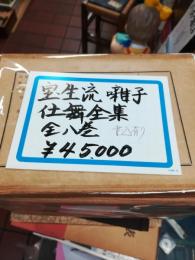 宝生流 囃子
仕舞全集
全八巻 書込有り
¥45.000